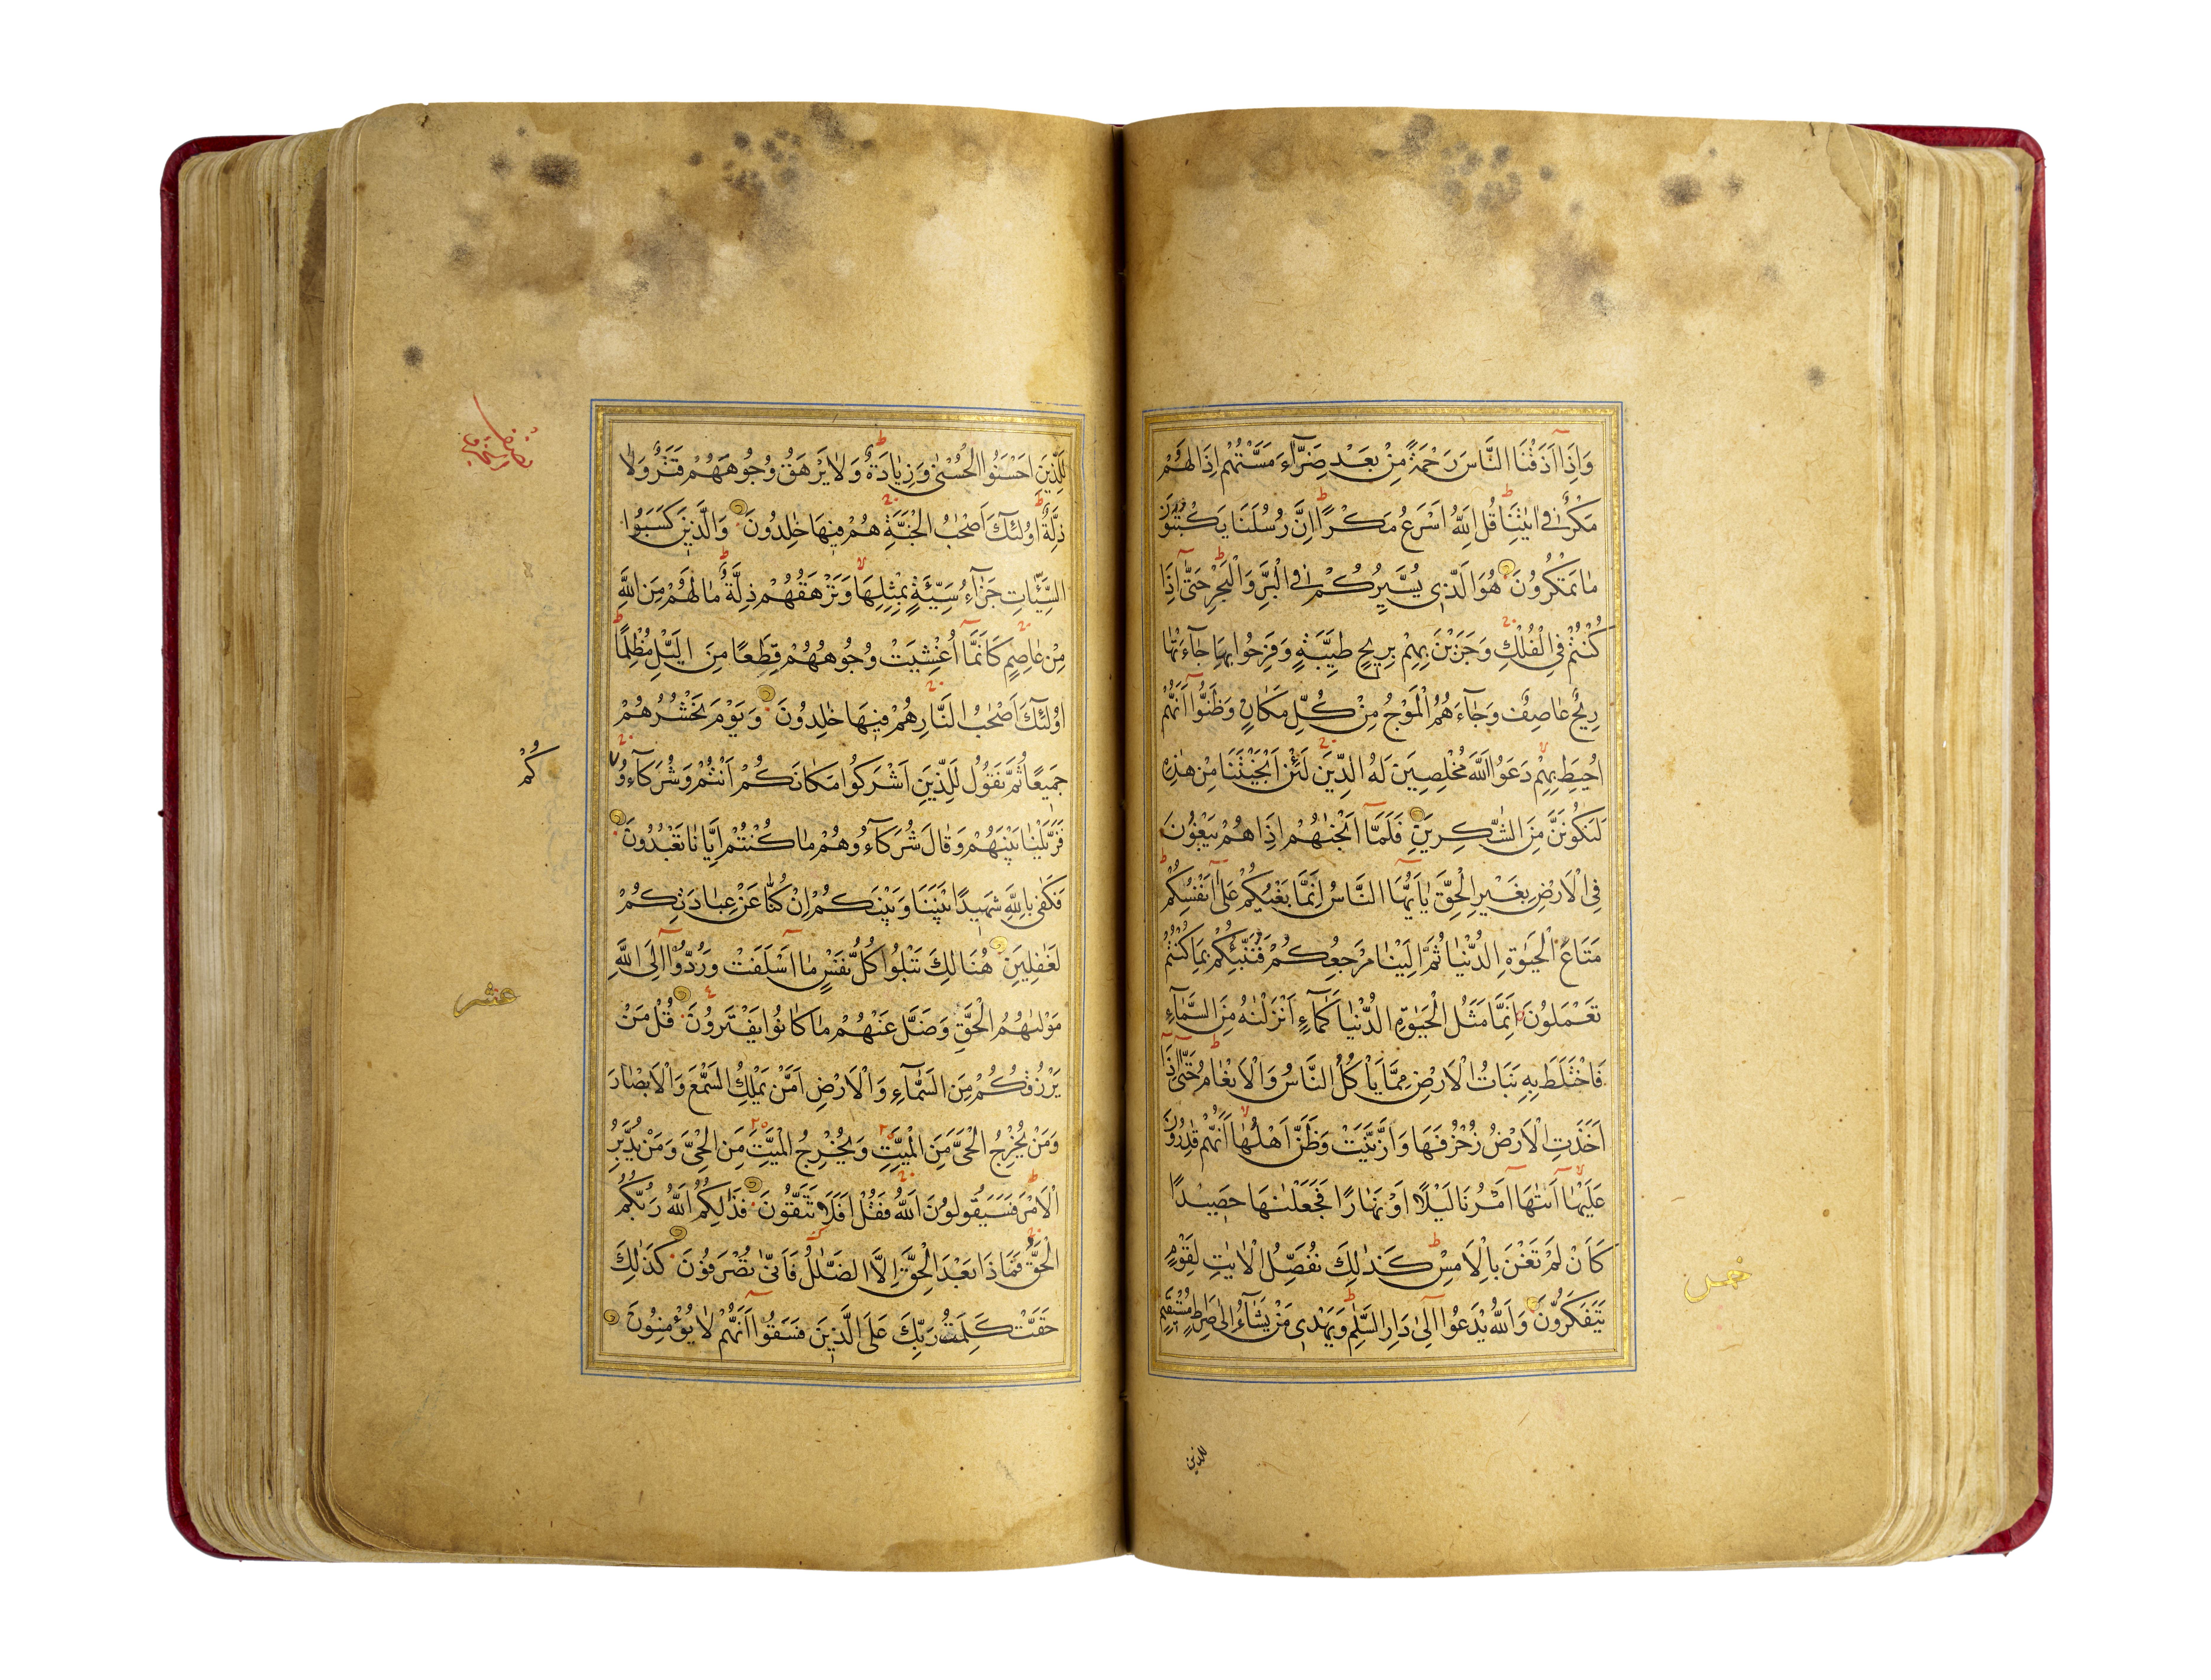 وَاِذَا اَذَقْنَا النَّاسَ رَحْمَةً مِنْ بَعْدِ ضَرَّآءَ مَسَّتْهُمْ اِذَا لَهُمْ
مَكْرٌ فِي اٰيٰتِنَا قُلِ اللّٰهُ اَسْرَعُ مَكْرًا اِنَّ رُسُلَنَا يَكْتُبُوْنَ
مَا تَمْكُرُوْنَ هُوَ الَّذِي يُسَيِّرُكُمْ فِي الْبَرِّ وَالْبَحْرِ حَتّٰى اِذَا
كُنْتُمْ فِي الْفُلْكِ وَجَرَيْنَ بِهِمْ بِرِيْحٍ طَيِّبَةٍ وَفَرِحُوا بِهَا جَآءَتْهَا
رِيْحٌ عَاصِفٌ وَجَآءَهُمُ الْمَوْجُ مِنْ كُلِّ مَكَانٍ وَظَنُّوْا اَنَّهُمْ
اُحِيْطَ بِهِمْ دَعَوُا اللّٰهَ مُخْلِصِيْنَ لَهُ الدِّيْنَ لَئِنْ اَنْجَيْتَنَا مِنْ هٰذِهِ
لَنَكُوْنَنَّ مِنَ الشّٰكِرِيْنَ فَلَمَّا اَنْجٰىهُمْ اِذَا هُمْ يَبْغُوْنَ
فِي الْاَرْضِ بِغَيْرِ الْحَقِّ يٰاَيُّهَا النَّاسُ اِنَّمَا بَغْيُكُمْ عَلٰى اَنْفُسِكُمْ
مَتَاعَ الْحَيٰوةِ الدُّنْيَا ثُمَّ اِلَيْنَا مَرْجِعُكُمْ فَنُنَبِّئُكُمْ بِمَا كُنْتُمْ
تَعْمَلُوْنَ اِنَّمَا مَثَلُ الْحَيٰوةِ الدُّنْيَا كَمَآءٍ اَنْزَلْنٰهُ مِنَ السَّمَآءِ
فَاخْتَلَطَ بِهِ نَبَاتُ الْاَرْضِ مِمَّا يَاْكُلُ النَّاسُ وَالْاَنْعَامُ حَتّٰى اِذَا
اَخَذَتِ الْاَرْضُ زُخْرُفَهَا وَازَّيَّنَتْ وَظَنَّ اَهْلُهَا اَنَّهُمْ قٰدِرُوْنَ
عَلَيْهَا اَتٰىهَا اَمْرُنَا لَيْلًا اَوْ نَهَارًا فَجَعَلْنٰهَا حَصِيْدًا
كَاَنْ لَمْ تَغْنَ بِالْاَمْسِ كَذٰلِكَ نُفَصِّلُ الْاٰيٰتِ لِقَوْمٍ
يَتَفَكَّرُوْنَ وَاللّٰهُ يَدْعُوا اِلٰى دَارِ السَّلٰمِ وَيَهْدِي مَنْ يَشَآءُ اِلٰى صِرَاطٍ مُسْتَقِيْمٍ
خمس
للذين
لِلَّذِيْنَ اَحْسَنُوا الْحُسْنٰى وَزِيَادَةٌ وَلَا يَرْهَقُ وُجُوْهَهُمْ قَتَرٌ وَلَا
ذِلَّةٌ اُولٰئِكَ اَصْحٰبُ الْجَنَّةِ هُمْ فِيْهَا خٰلِدُوْنَ وَالَّذِيْنَ كَسَبُوا
السَّيِّاٰتِ جَزَآءُ سَيِّئَةٍ بِمِثْلِهَا وَتَرْهَقُهُمْ ذِلَّةٌ مَا لَهُمْ مِنَ اللّٰهِ
مِنْ عَاصِمٍ كَاَنَّمَا اُغْشِيَتْ وُجُوْهُهُمْ قِطَعًا مِنَ الَّيْلِ مُظْلِمًا
اُولٰئِكَ اَصْحٰبُ النَّارِ هُمْ فِيْهَا خٰلِدُوْنَ وَيَوْمَ نَحْشُرُهُمْ
جَمِيْعًا ثُمَّ نَقُوْلُ لِلَّذِيْنَ اَشْرَكُوا مَكَانَكُمْ اَنْتُمْ وَشُرَكَآءُ
كُمْ
فَزَيَّلْنَا بَيْنَهُمْ وَقَالَ شُرَكَآؤُهُمْ مَا كُنْتُمْ اِيَّانَا تَعْبُدُوْنَ
فَكَفٰى بِاللّٰهِ شَهِيْدًا بَيْنَنَا وَبَيْنَكُمْ اِنْ كُنَّا عَنْ عِبَادَتِكُمْ
لَغٰفِلِيْنَ هُنَالِكَ تَبْلُوا كُلُّ نَفْسٍ مَا اَسْلَفَتْ وَرُدُّوْا اِلَى اللّٰهِ
عشر
مَوْلٰىهُمُ الْحَقِّ وَضَلَّ عَنْهُمْ مَا كَانُوا يَفْتَرُوْنَ قُلْ مَنْ
يَرْزُقُكُمْ مِنَ السَّمَآءِ وَالْاَرْضِ اَمَّنْ يَمْلِكُ السَّمْعَ وَالْاَبْصَارَ
وَمَنْ يُخْرِجُ الْحَيَّ مِنَ الْمَيِّتِ وَيُخْرِجُ الْمَيِّتَ مِنَ الْحَيِّ وَمَنْ يُدَبِّرُ
الْاَمْرَ فَسَيَقُوْلُوْنَ اللّٰهُ فَقُلْ اَفَلَا تَتَّقُوْنَ فَذٰلِكُمُ اللّٰهُ رَبُّكُمُ
الْحَقُّ فَمَاذَا بَعْدَ الْحَقِّ اِلَّا الضَّلٰلُ فَاَنّٰى تُصْرَفُوْنَ كَذٰلِكَ
حَقَّتْ كَلِمَتُ رَبِّكَ عَلَى الَّذِيْنَ فَسَقُوْا اَنَّهُمْ لَا يُؤْمِنُوْنَ